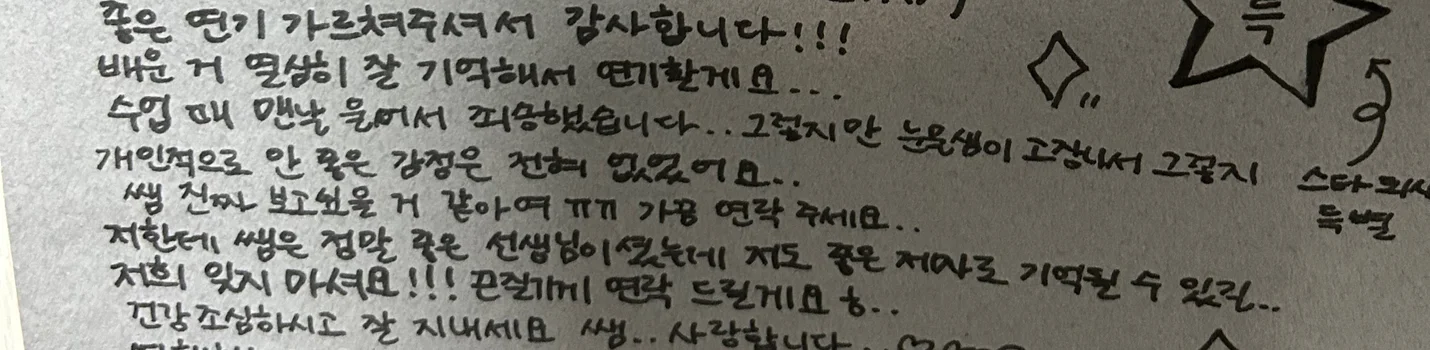 좋은 연기 가르쳐주셔서 감사합니다!!!
배운 거 열심히 잘 기억해서 연기할게요...
수업 때 맨날 울어서 죄송했습니다.. 그렇지만 눈물샘이 고장나서 그렇지
개인적으로 안 좋은 감정은 전혀 없었어요..
쌤 진짜 보고싶을 거 같아여 ㅠㅠ 가끔 연락 주세요..
저한테 쌤은 정말 좋은 선생님이셨는데 저도 좋은 제자로 기억될 수 있길..
저희 잊지 마셔요!!! 끈질기게 연락 드릴게요 ㅎ..
건강 조심하시고 잘 지내세요 쌤.. 사랑합니다..
특
스타
특별